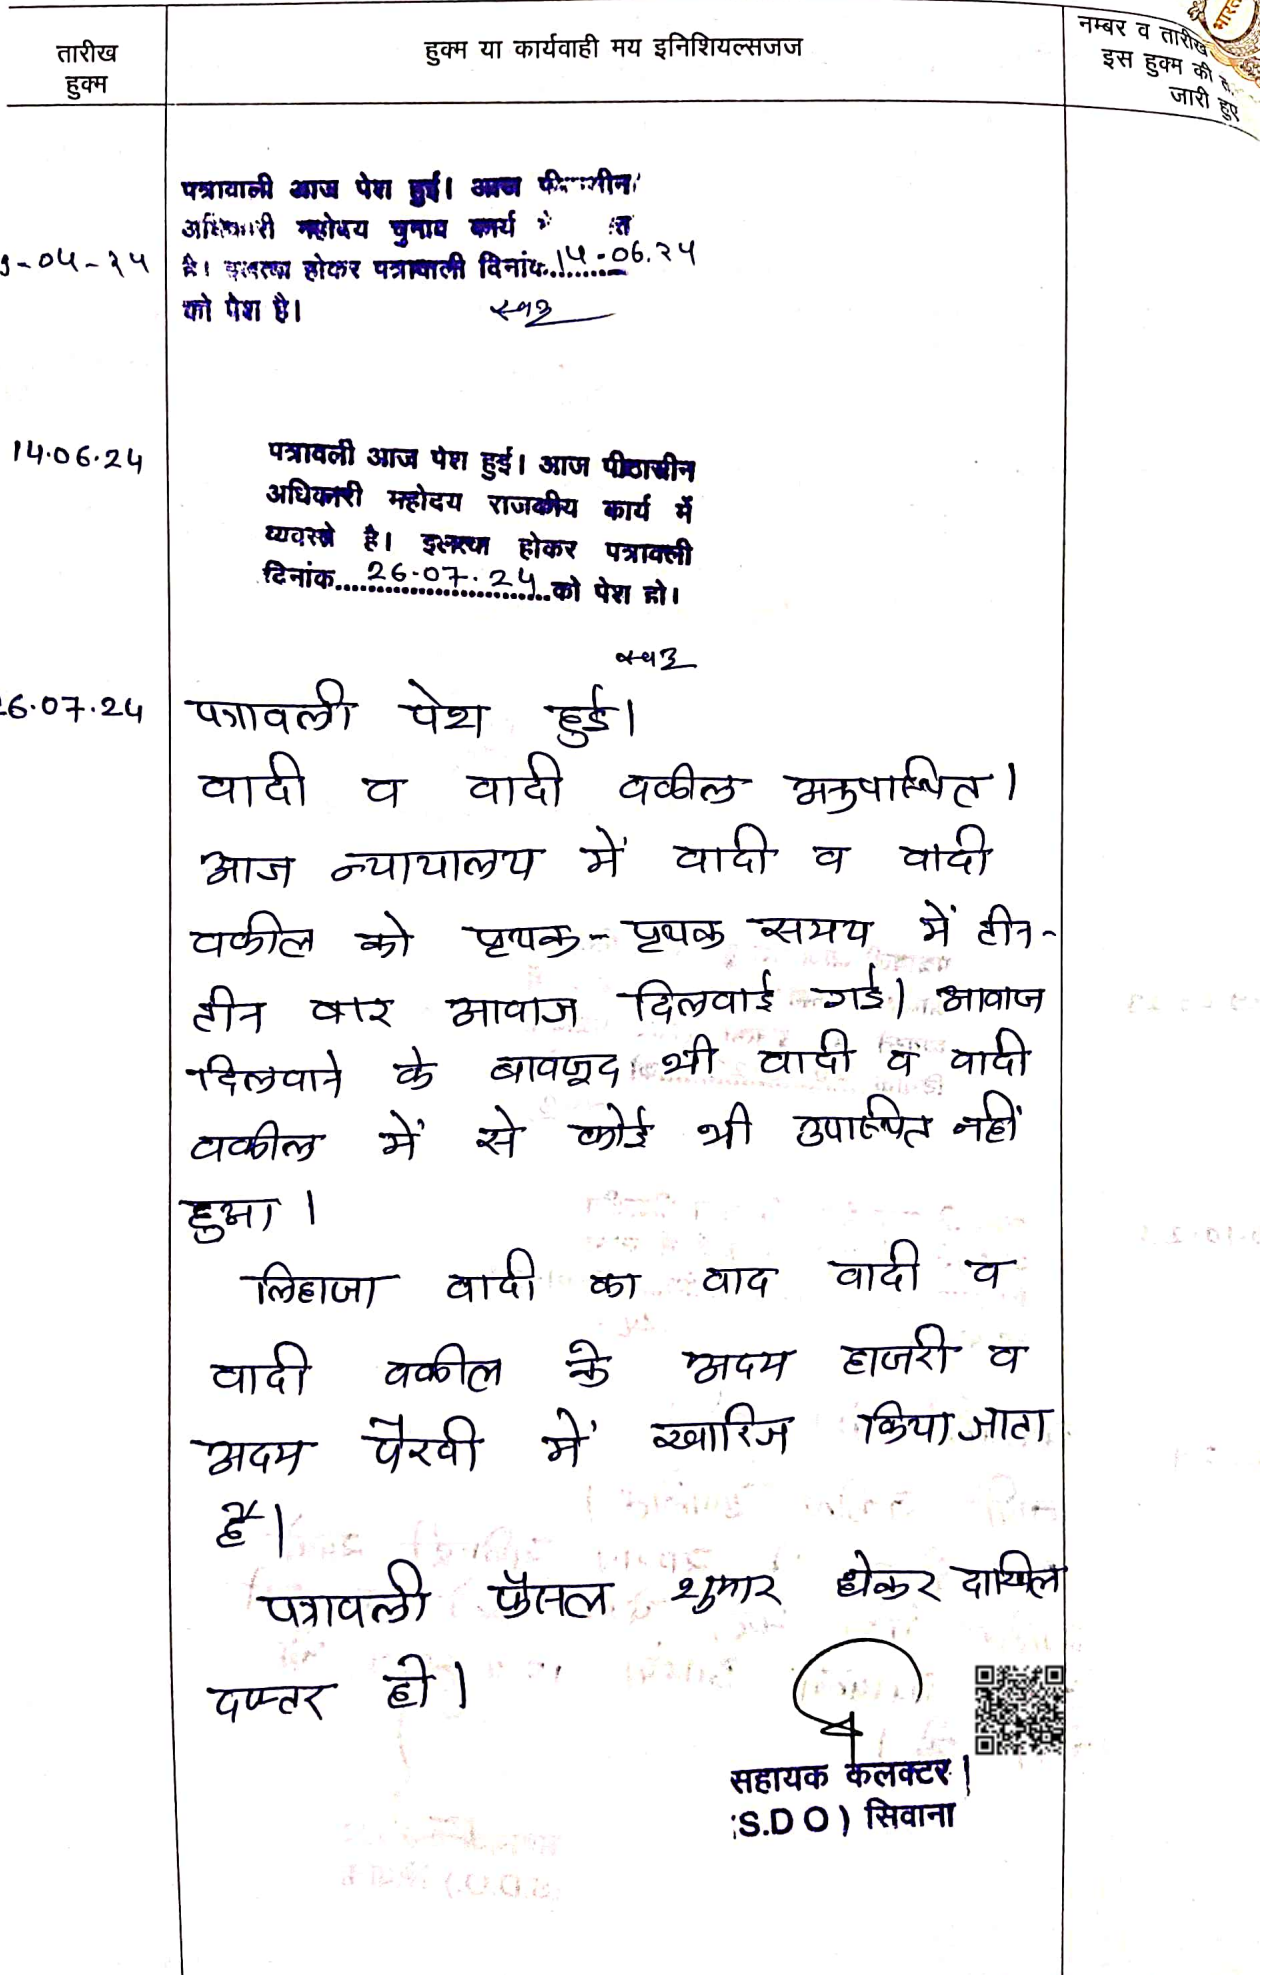 तारीख
हुक्म
हुक्म या कार्यवाही मय इनिशियल्सजज
नम्बर व तारीख
इस हुक्म की
जारी हुए
पत्रावली आज पेश हुई। आज
अधिकारी महोदय चुनाव कार्य
-04-24 है। इलतवा होकर पत्रावली दिनांक 14-06.24
को पेश है।
14.06.24 पत्रावली आज पेश हुई। आज पीठासीन
अधिकारी महोदय राजकीय कार्य में
व्यवस्त है। इलतवा होकर पत्रावली
दिनांक....26-07.24....को पेश हो।
26.07.24 पत्रावली पेश हुई।
वादी व वादी वकील अनुपस्थित।
आज न्यायालय में वादी व वादी
वकील को पृथक-पृथक समय में तीन-
तीन बार आवाज दिलवाई गई। आवाज
दिलवाने के बावजूद भी वादी व वादी
वकील में से कोई भी उपस्थित नहीं
हुआ।
लिहाजा वादी का वाद वादी व
वादी वकील के अदम हाजरी व
अदम पैरवी में खारिज किया जाता
है।
पत्रावली फैसल शुमार होकर दाखिल
दफ्तर हो।
सहायक कलक्टर
(S.D O) सिवाना